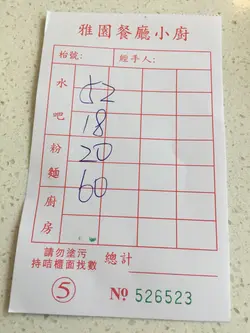 雅園餐廳小廚
枱號: 經手人:
水吧
52
18
粉麵
20
60
廚房
請勿塗污
持咭檯面找數
總計
5
No 526523